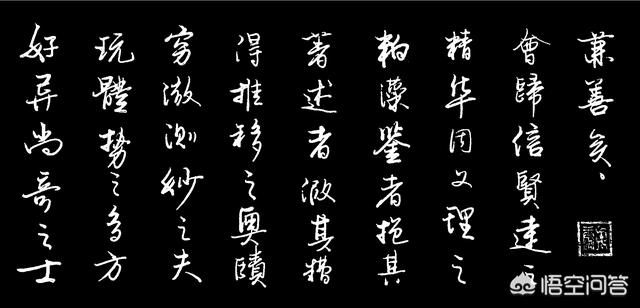 好異尚奇之士
玩體勢之多方
窮微測妙之夫
得推移之奧賾
著述者假其糟
粕藻鑒者挹其
精華固義理之
會歸信賢達之
兼善矣、
悟空问答